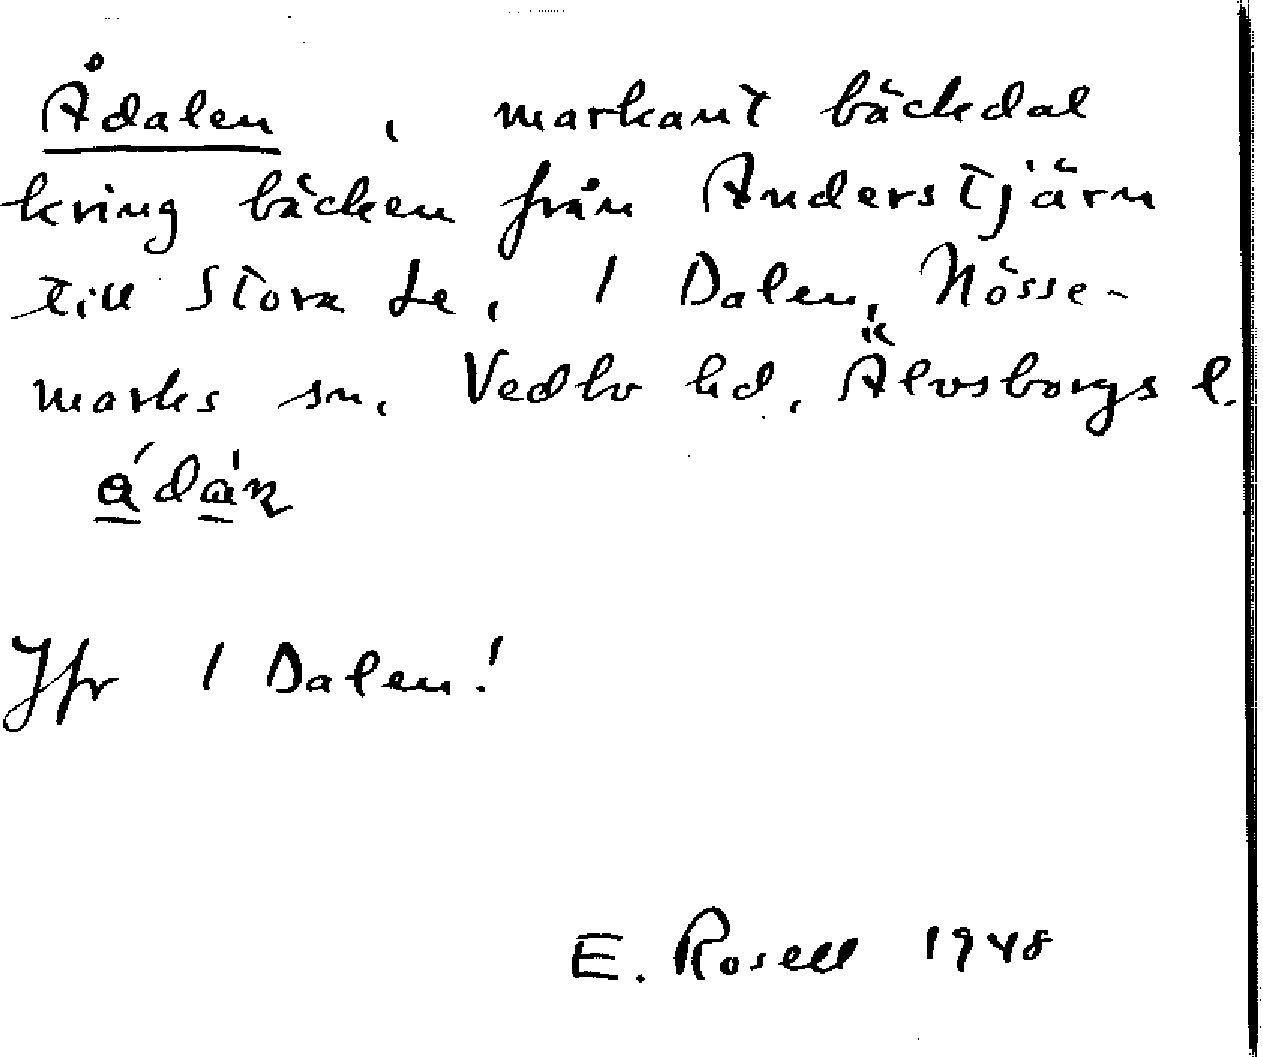 Ådalen, markant bäckdal
kring bäcken från Anderstjärn
till Stora Le, I Dalen, Nösse-
marks sn, Vedbo hd, Älvsborgs l.
Jfr I Dalen!
E. Rosell 1948